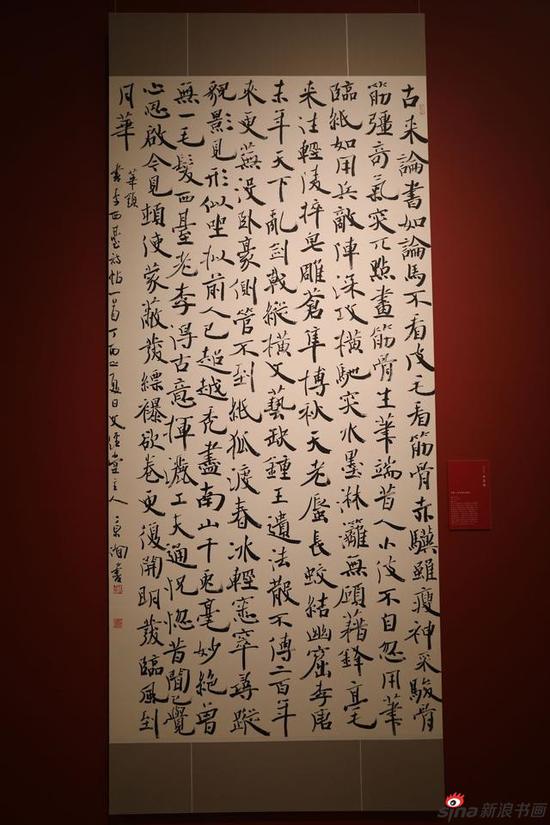 古来論書如論馬不看皮毛看筋骨赤驥雖瘦神采駿骨
筋彊奇氣突兀點畫筋骨生筆端昔人小伎不自忽用筆
臨紙如用兵敵陣深攻橫馳突水墨淋灕無顧藉鋒毫
来往輕陵捽皂雕蒼隼博秋天老蜃長蛟結幽窟李唐
末年天下亂劍戟縱橫文藝缺鍾王遺法散不傳二百年
来更蕪没卧毫側管不到紙狐渡春冰輕窸窣尋蹤
貌影見形似坐似前人已超越禿盡南山千兔毫妙絶曾
無一毛髮西臺老李得古意揮灑工夫通怳惚昔聞已覺
心思啟今見頓使蒙蔽發縹褾欲卷更復開明發臨風到
月華
書李西臺詩帖一首丁酉之夏日堂主人書
sina新浪书画